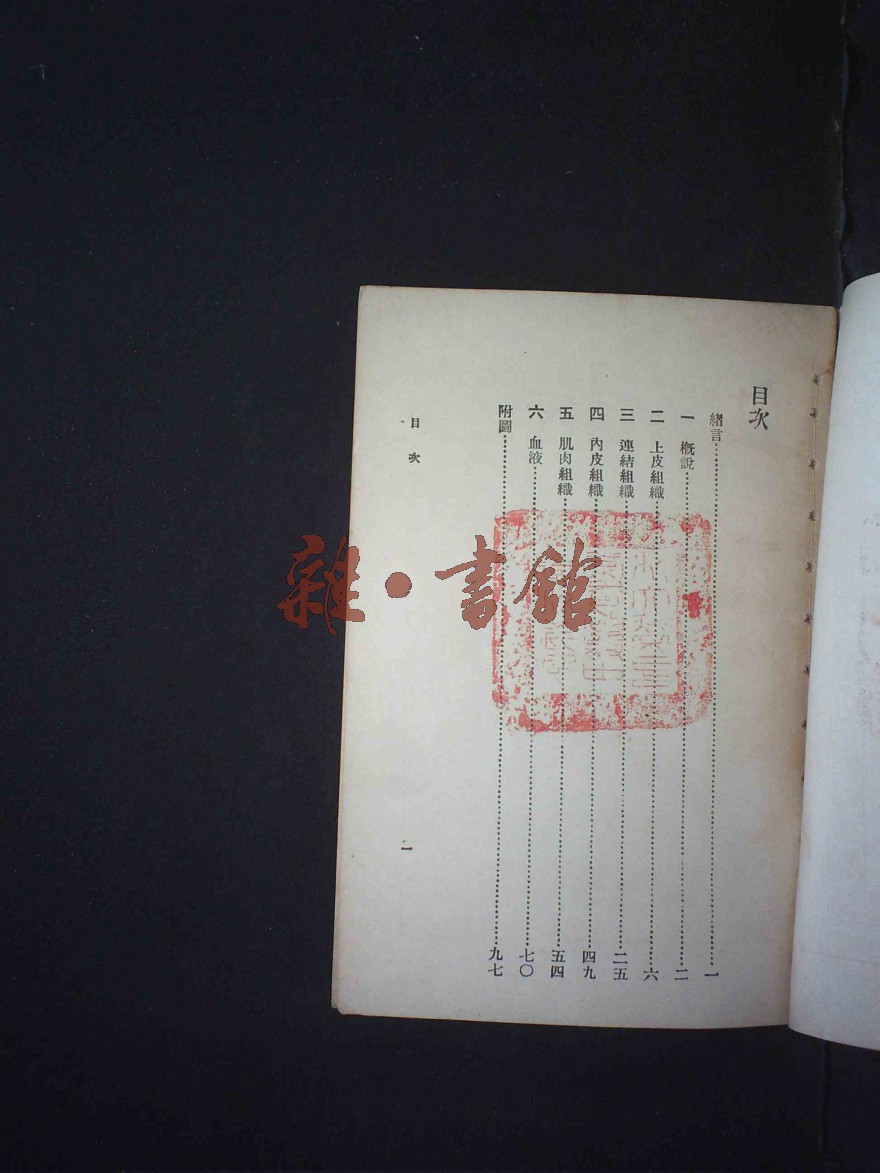 目次
緒言……一
一 概說……二
二 上皮組織……六
三 連結組織……二五
四 內皮組織……四九
五 肌肉組織……五四
六 血液……七〇
附圖……九七
目次
一
雜·書館